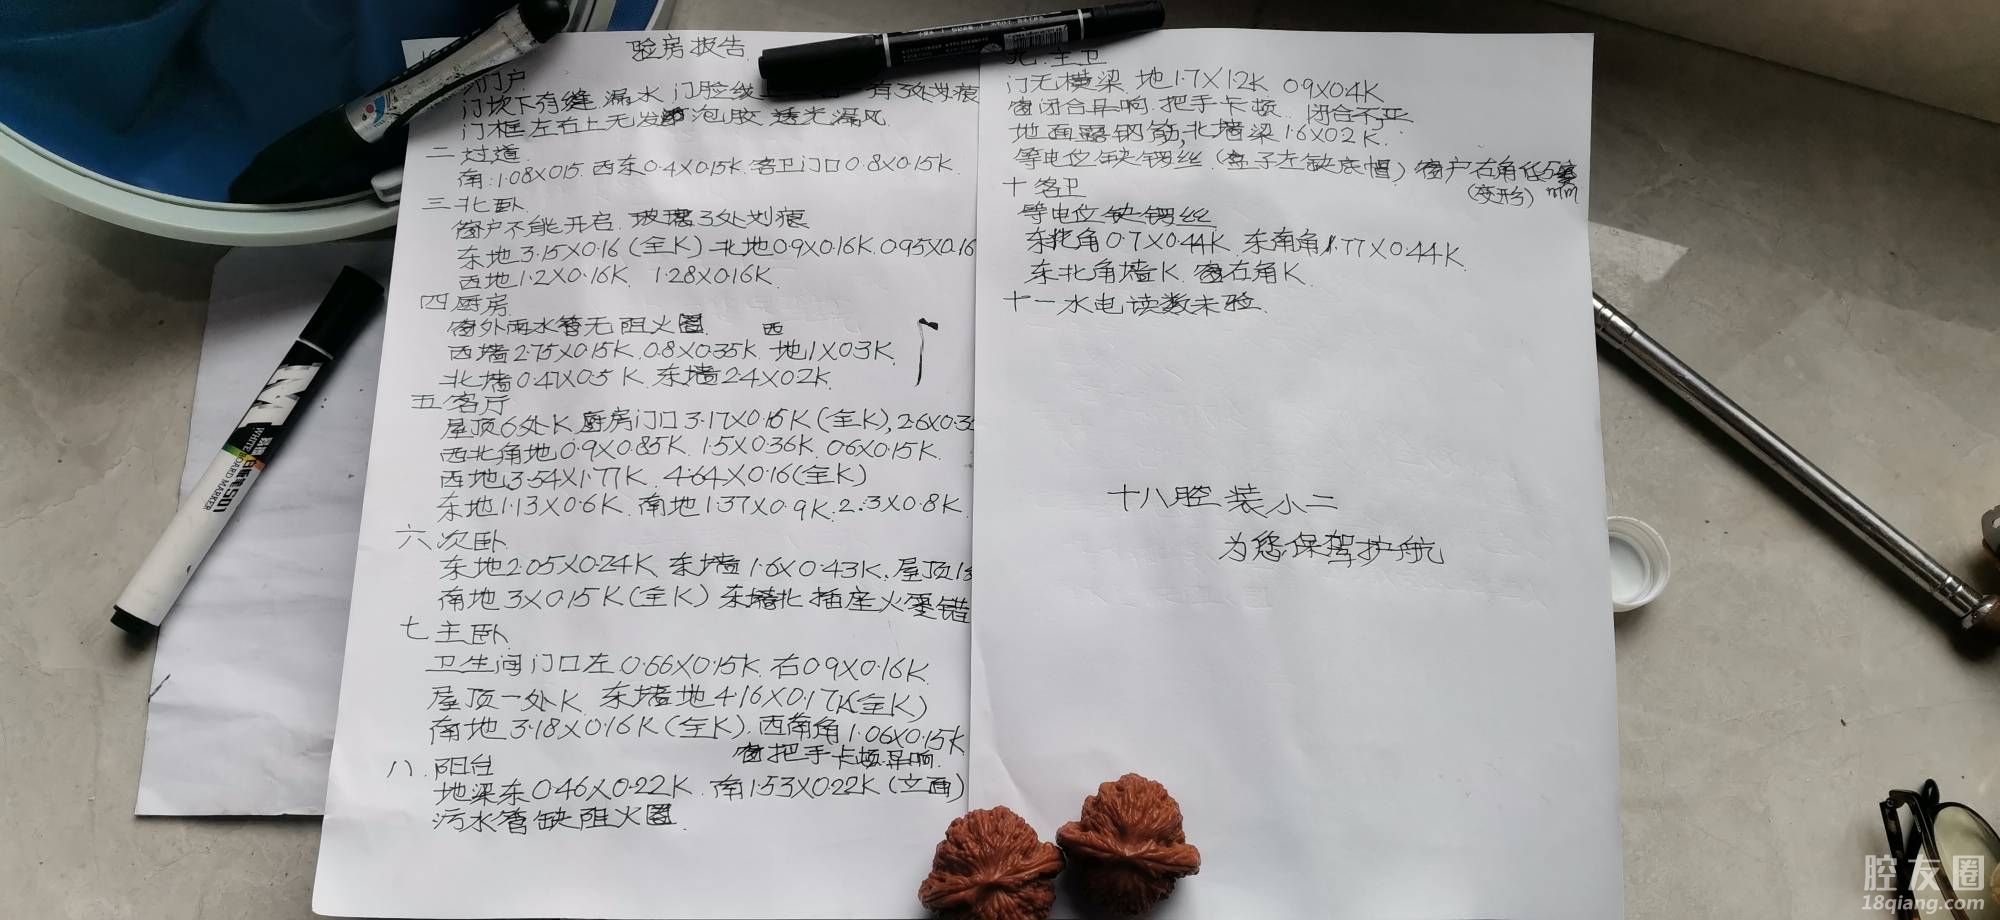 验房报告
门户
门坎下有缝 漏水 门脸线 有3处划痕
门框左右上无发泡胶 透光漏风
二 过道
南:1.08X0.15. 西东0.4X0.15K. 客卫门口0.8X0.15K.
三 北卧
窗户不能开启 玻璃3处划痕
东地3.15X0.16(全K) 北地0.9X0.16K. 0.95X0.16
西地1.2X0.16K 1.28X0.16K.
四 厨房
窗外雨水管无阻火圈 西
西墙2.75X0.15K. 0.8X0.35K. 地1X0.3K.
北墙0.47X0.5K. 东墙2.4X0.2K.
五 客厅
屋顶6处K. 厨房门口3.17X0.15K(全K),2.6X0.3
西北角地0.9X0.85K. 1.5X0.36K. 0.6X0.15K.
西地3.54X1.77K. 4.64X0.16(全K)
东地1.13X0.6K. 南地1.37X0.9K. 2.3X0.8K.
六 次卧
东地2.05X0.24K. 东墙1.6X0.43K. 屋顶1
南地3X0.15K(全K) 东墙北 插座火零错
七 主卧
卫生间门口左0.66X0.15K. 右0.9X0.16K.
屋顶一处K. 东墙地4.16X0.17K(全K)
南地3.18X0.16K(全K). 西南角1.06X0.15K
窗把手卡顿异响.
八.阳台
地梁东0.46X0.22K. 南1.53X0.22K(立面)
污水管缺阻火圈.
九.主卫
门无横梁 地1.7X1.2K 0.9X0.4K
窗闭合异响 把手卡顿 闭合不严
地面露钢筋,北墙梁1.6X0.2K.
等电位缺锣丝(盒子左缺底帽) 窗户右角低5
(变形) mm
十 客卫
等电位缺锣丝
东北角0.7X0.44K. 东南角1.77X0.44K.
东北角墙K. 窗右角K.
十一水电读数未验.
十八腔装小二
为您保驾护航
WHITE BOARD MARKER
白板笔501
腔友圈
18qiang.com